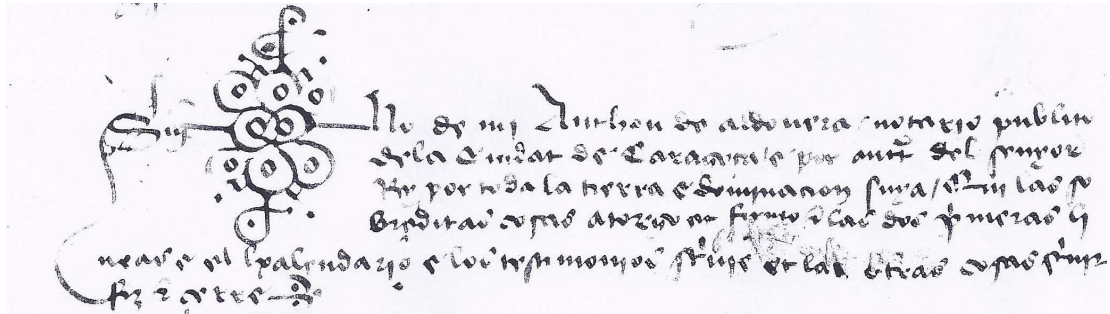 Sig no de mi Anthon de aldovera notario publico
dela Ciudat de Caragoca e por autt del senyor
Rey por toda la tierra e dominacion suya /
breditas cosas atorgo et las dos primeras li
neas e el kalendario e los testimonios scrivie et las otras cosas scrivir
fiz e cerre